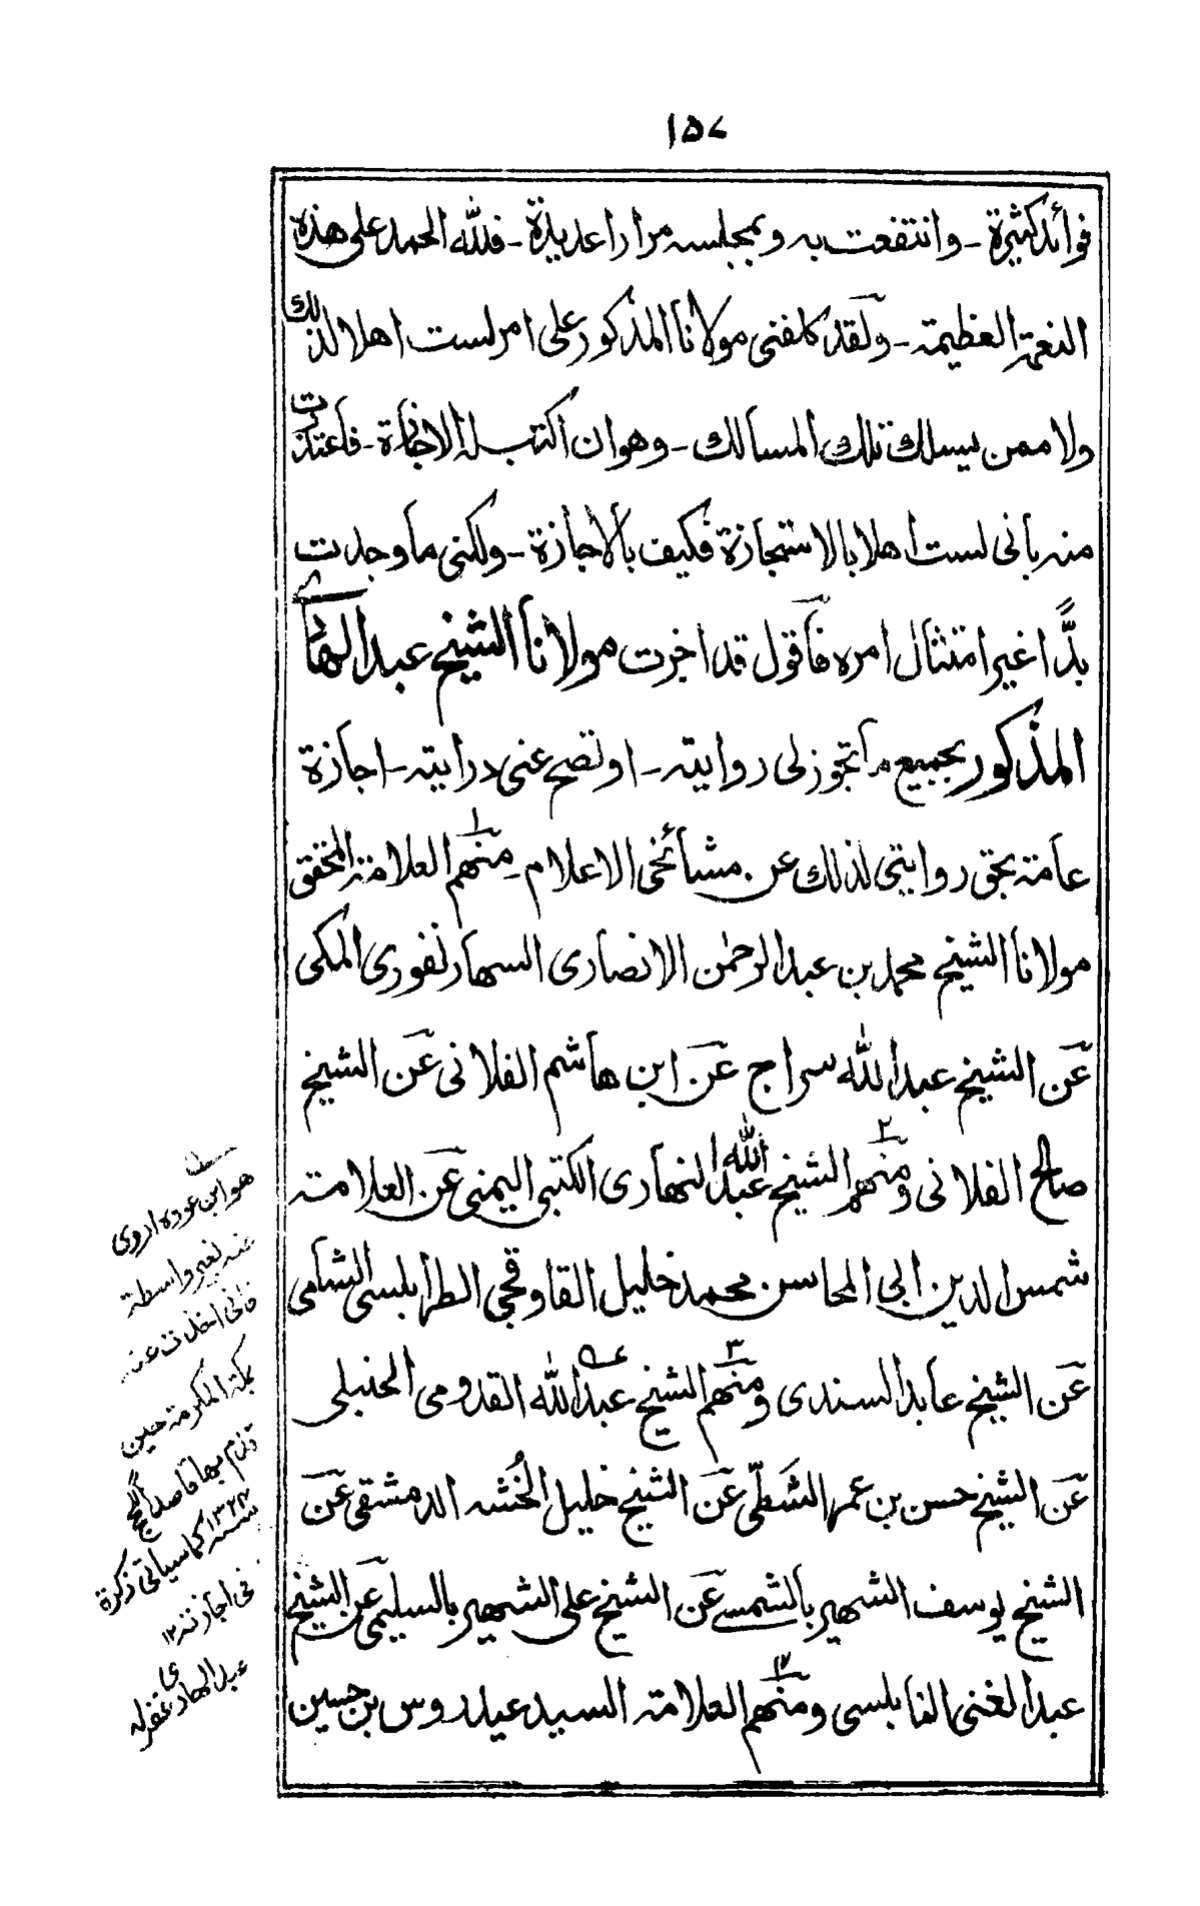 ١٥٧
فوائد كثيرة - وانتفعت به وبمجلسه مرارا عديدة - فلله الحمد على هذه
النعمة العظيمة - ولقد كلفنى مولانا المذكور على امر لست اهلا لذلك
ولا ممن يسلك تلك المسالك - وهو ان اكتب له الاجازة - فاعتذرت
منه بانى لست اهلا بالاستجازة فكيف بالاجازة - ولكنى ما وجدت
بدًّا غير امتثال امره فاقول قد اجزت مولانا الشيخ عبد الهادى
المذكور بجميع ما تجوز لى روايته - او تصح عنى درايته - اجازة
عامة بحق روايتى لذلك عن مشائخى الاعلام - منهم ١ العلامة المحقق
مولانا الشيخ محمد بن عبد الرحمٰن الانصارى السهارنفورى المكى
عن الشيخ عبد الله سراج عن ابن هاشم الفلانى عن الشيخ
صالح الفلانى ومنهم ٢ الشيخ عبد الله النهارى الكتبى اليمنى عن العلامة
شمس الدين ابى المحاسن محمد خليل القاوقجى الطرابلسى الشامى
عن الشيخ عابد السندى ومنهم ٣ الشيخ عبد الله القدومى الحنبلى
عن الشيخ حسن بن عمر الشَطّى عن الشيخ خليل الخُشه الدمشقى عن
الشيخ يوسف الشهير بالشمسى عن الشيخ على الشهير بالسليمى عن الشيخ
عبد الغنى النابلسى ومنهم ٤ العلامة السيد عيدروس بن حسين
هو ابن عوده اروى
عنه بغير واسطة
فانى اخذت عنه
بمكة المكرمة حين
قدم بها قاصدا للحج
سنه ١٣٢٢ كما سياتى ذكره
فى اجازته ١٢
عبد الهادى غفر له